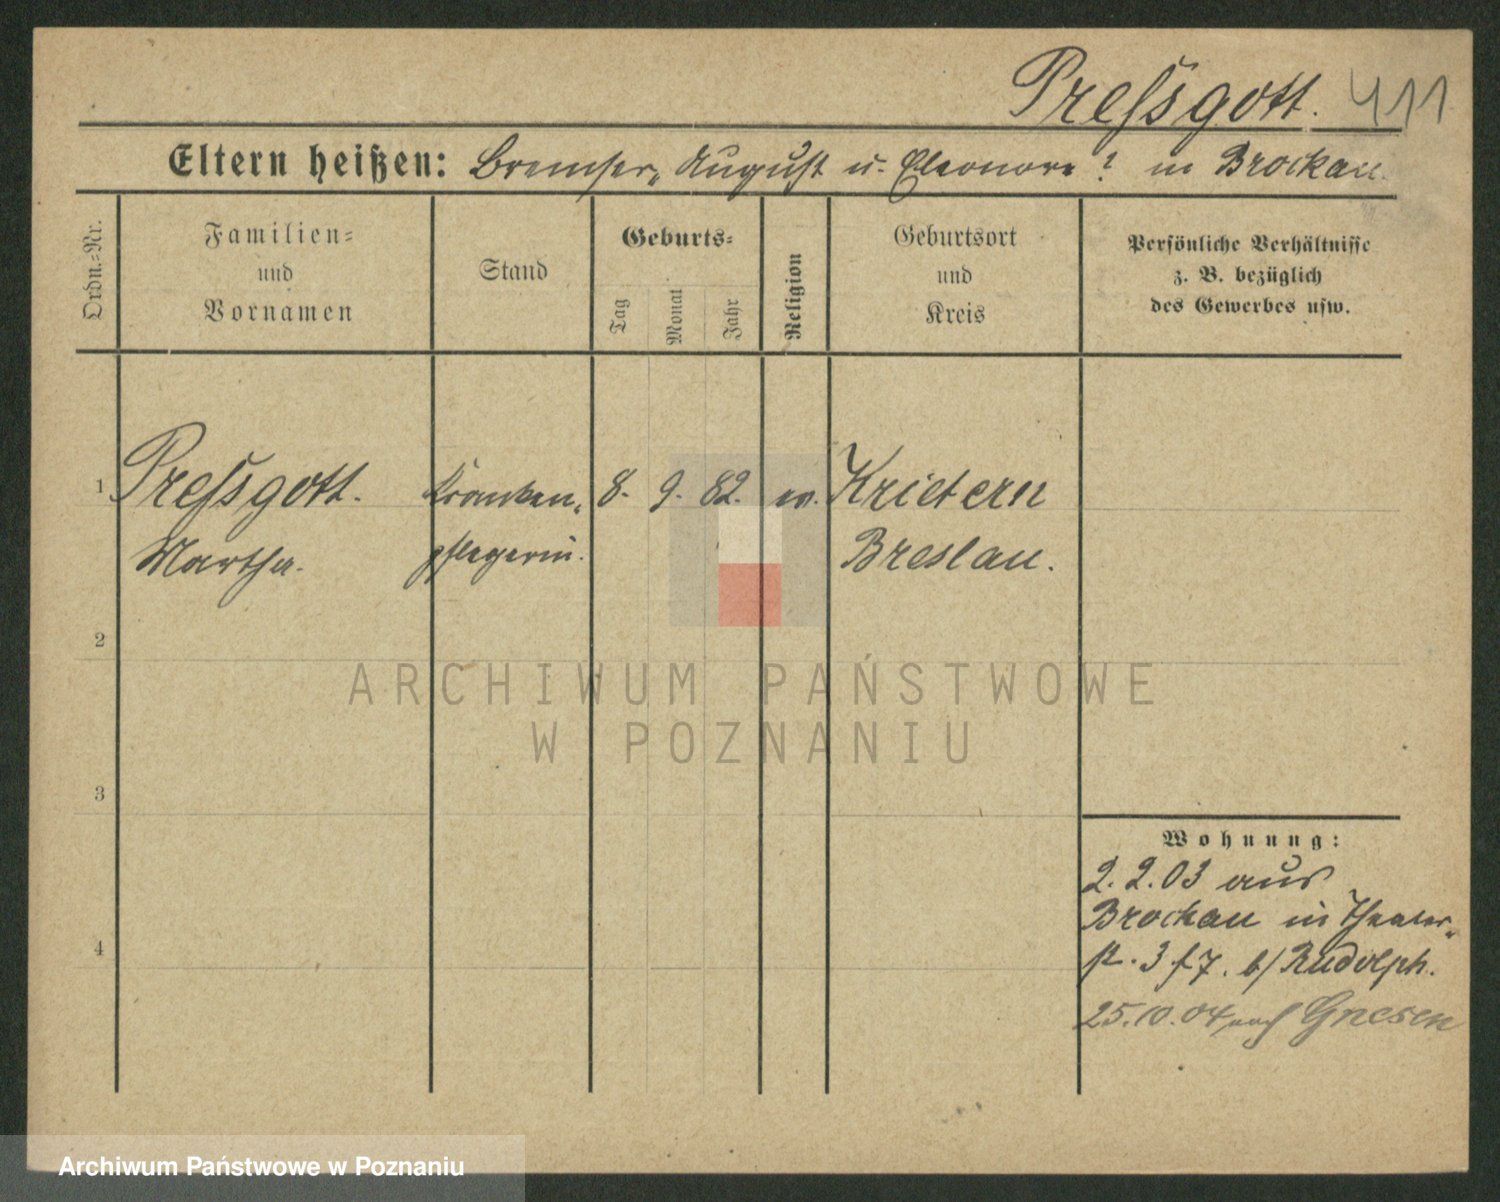 Preſsgott. 411
Eltern heißen: Bremser, August u. Eleonore ? in Brockau.
Ordn.-Nr.
Familien-
und
Vornamen
Stand
Geburts-
Tag
Monat
Jahr
Religion
Geburtsort
und
Kreis
Persönliche Verhältnisse
z. B. bezüglich
des Gewerbes usw.
1 Preſsgott. Kranken- 8. 9. 82. ev. Krietern
Martha. pflegerin. Breslau.
2
ARCHIWUM PAŃSTWOWE
W POZNANIU
3
Wohnung:
2. 2. 03 aus
Brockau in Theater-
st. 3 f 7. b/ Rudolph.
4
25.10.04 nach Gnesen
Archiwum Państwowe w Poznaniu